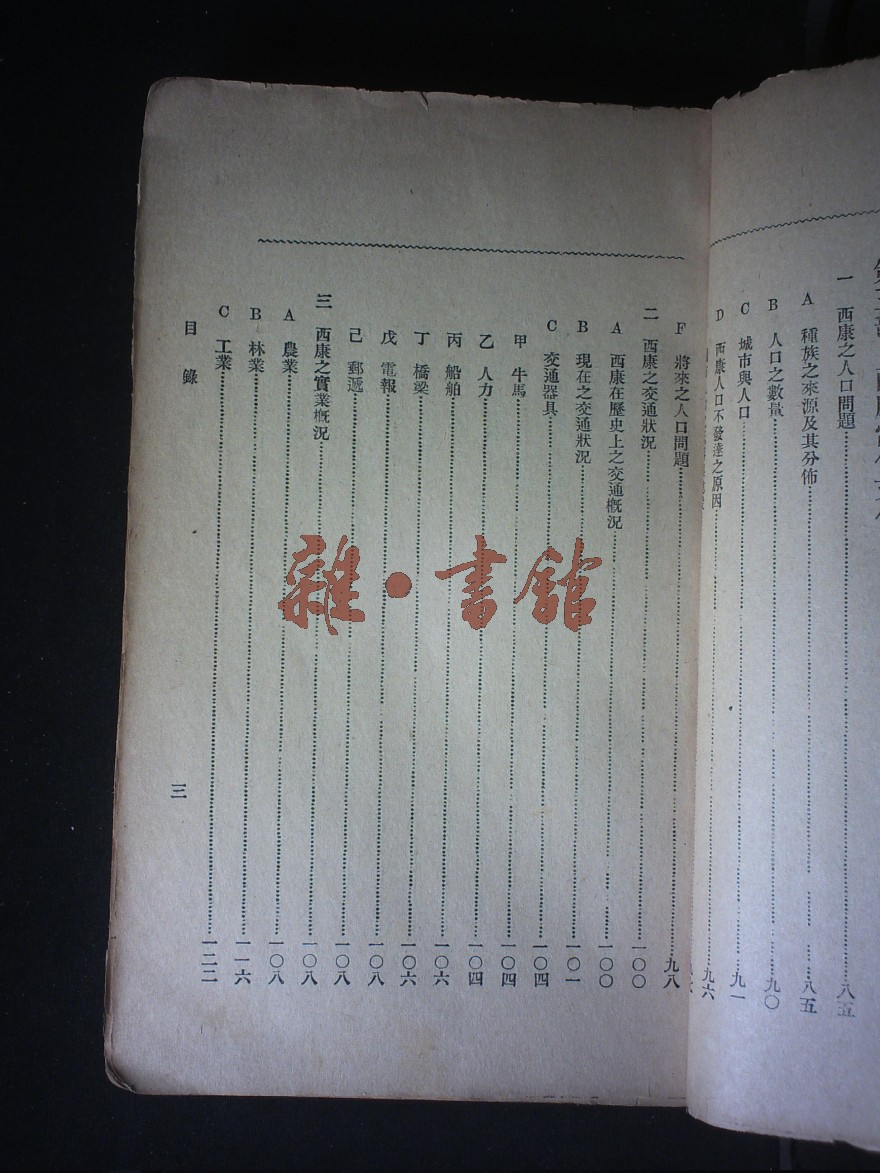 一　西康之人口問題……八五
A　種族之來源及其分佈……八五
B　人口之數量……九〇
C　城市與人口……九一
D　西康人口不發達之原因……九六
F　將來之人口問題……九八
二　西康之交通狀況……一〇〇
A　西康在歷史上之交通概況……一〇〇
B　現在之交通狀況……一〇一
C　交通器具……一〇四
甲　牛馬……一〇四
乙　人力……一〇四
丙　船舶……一〇六
丁　橋梁……一〇六
戊　電報……一〇八
己　郵遞……一〇八
三　西康之實業概況……一〇八
A　農業……一〇八
B　林業……一一六
C　工業……一二二
目錄
三
雜·書館